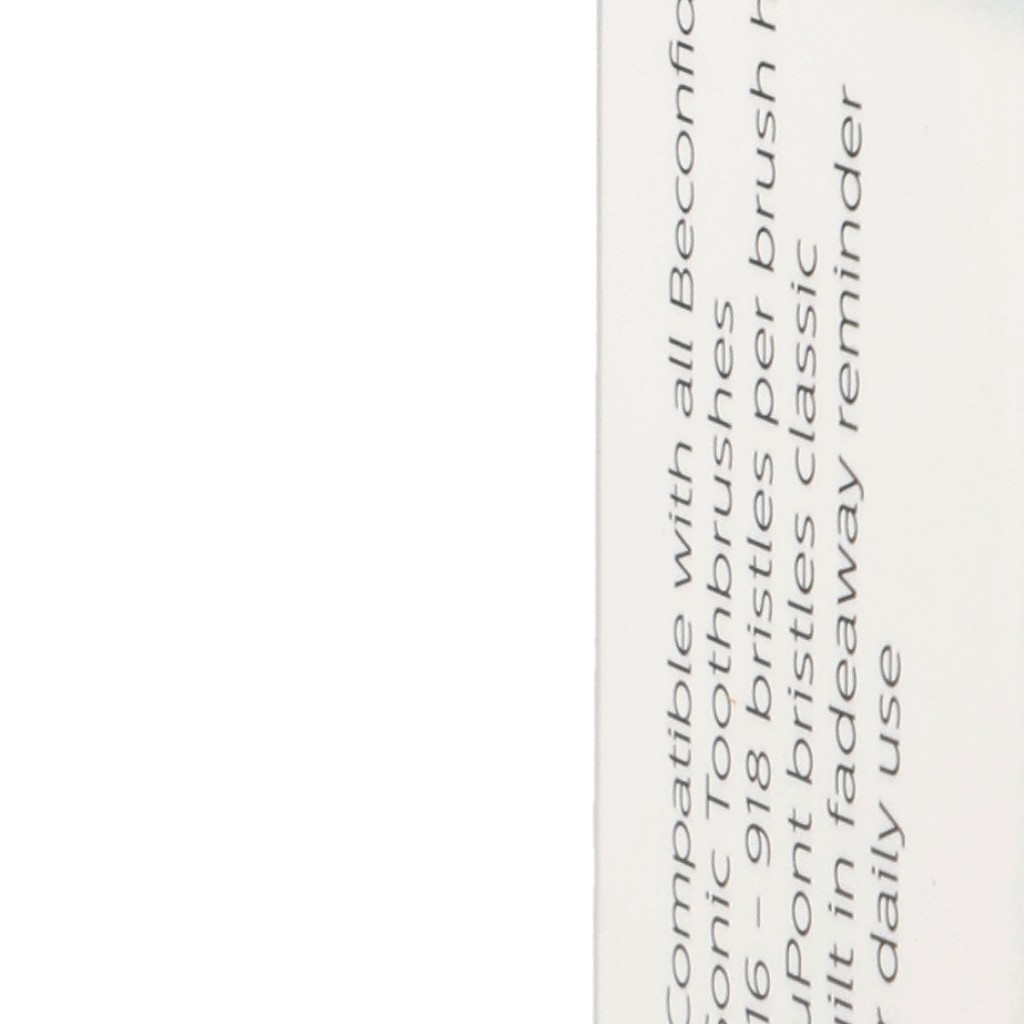 Compatible with all Beconfid
Sonic Toothbrushes
16 - 918 bristles per brush h
uPont bristles classic
uilt in fadeaway reminder
r daily use